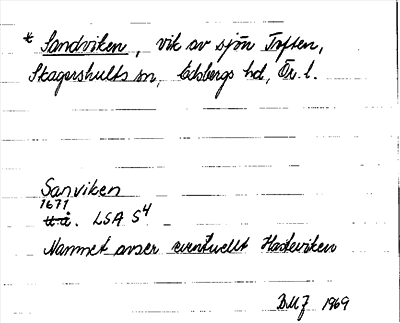 * Sandviken, vik av sjön Toften,
Skagershults sn, Edsbergs hd, Ör. l.
Sanviken
1671
u.å. LSA S4
Namnet avser eventuellt Hasteviken
BMJ 1969